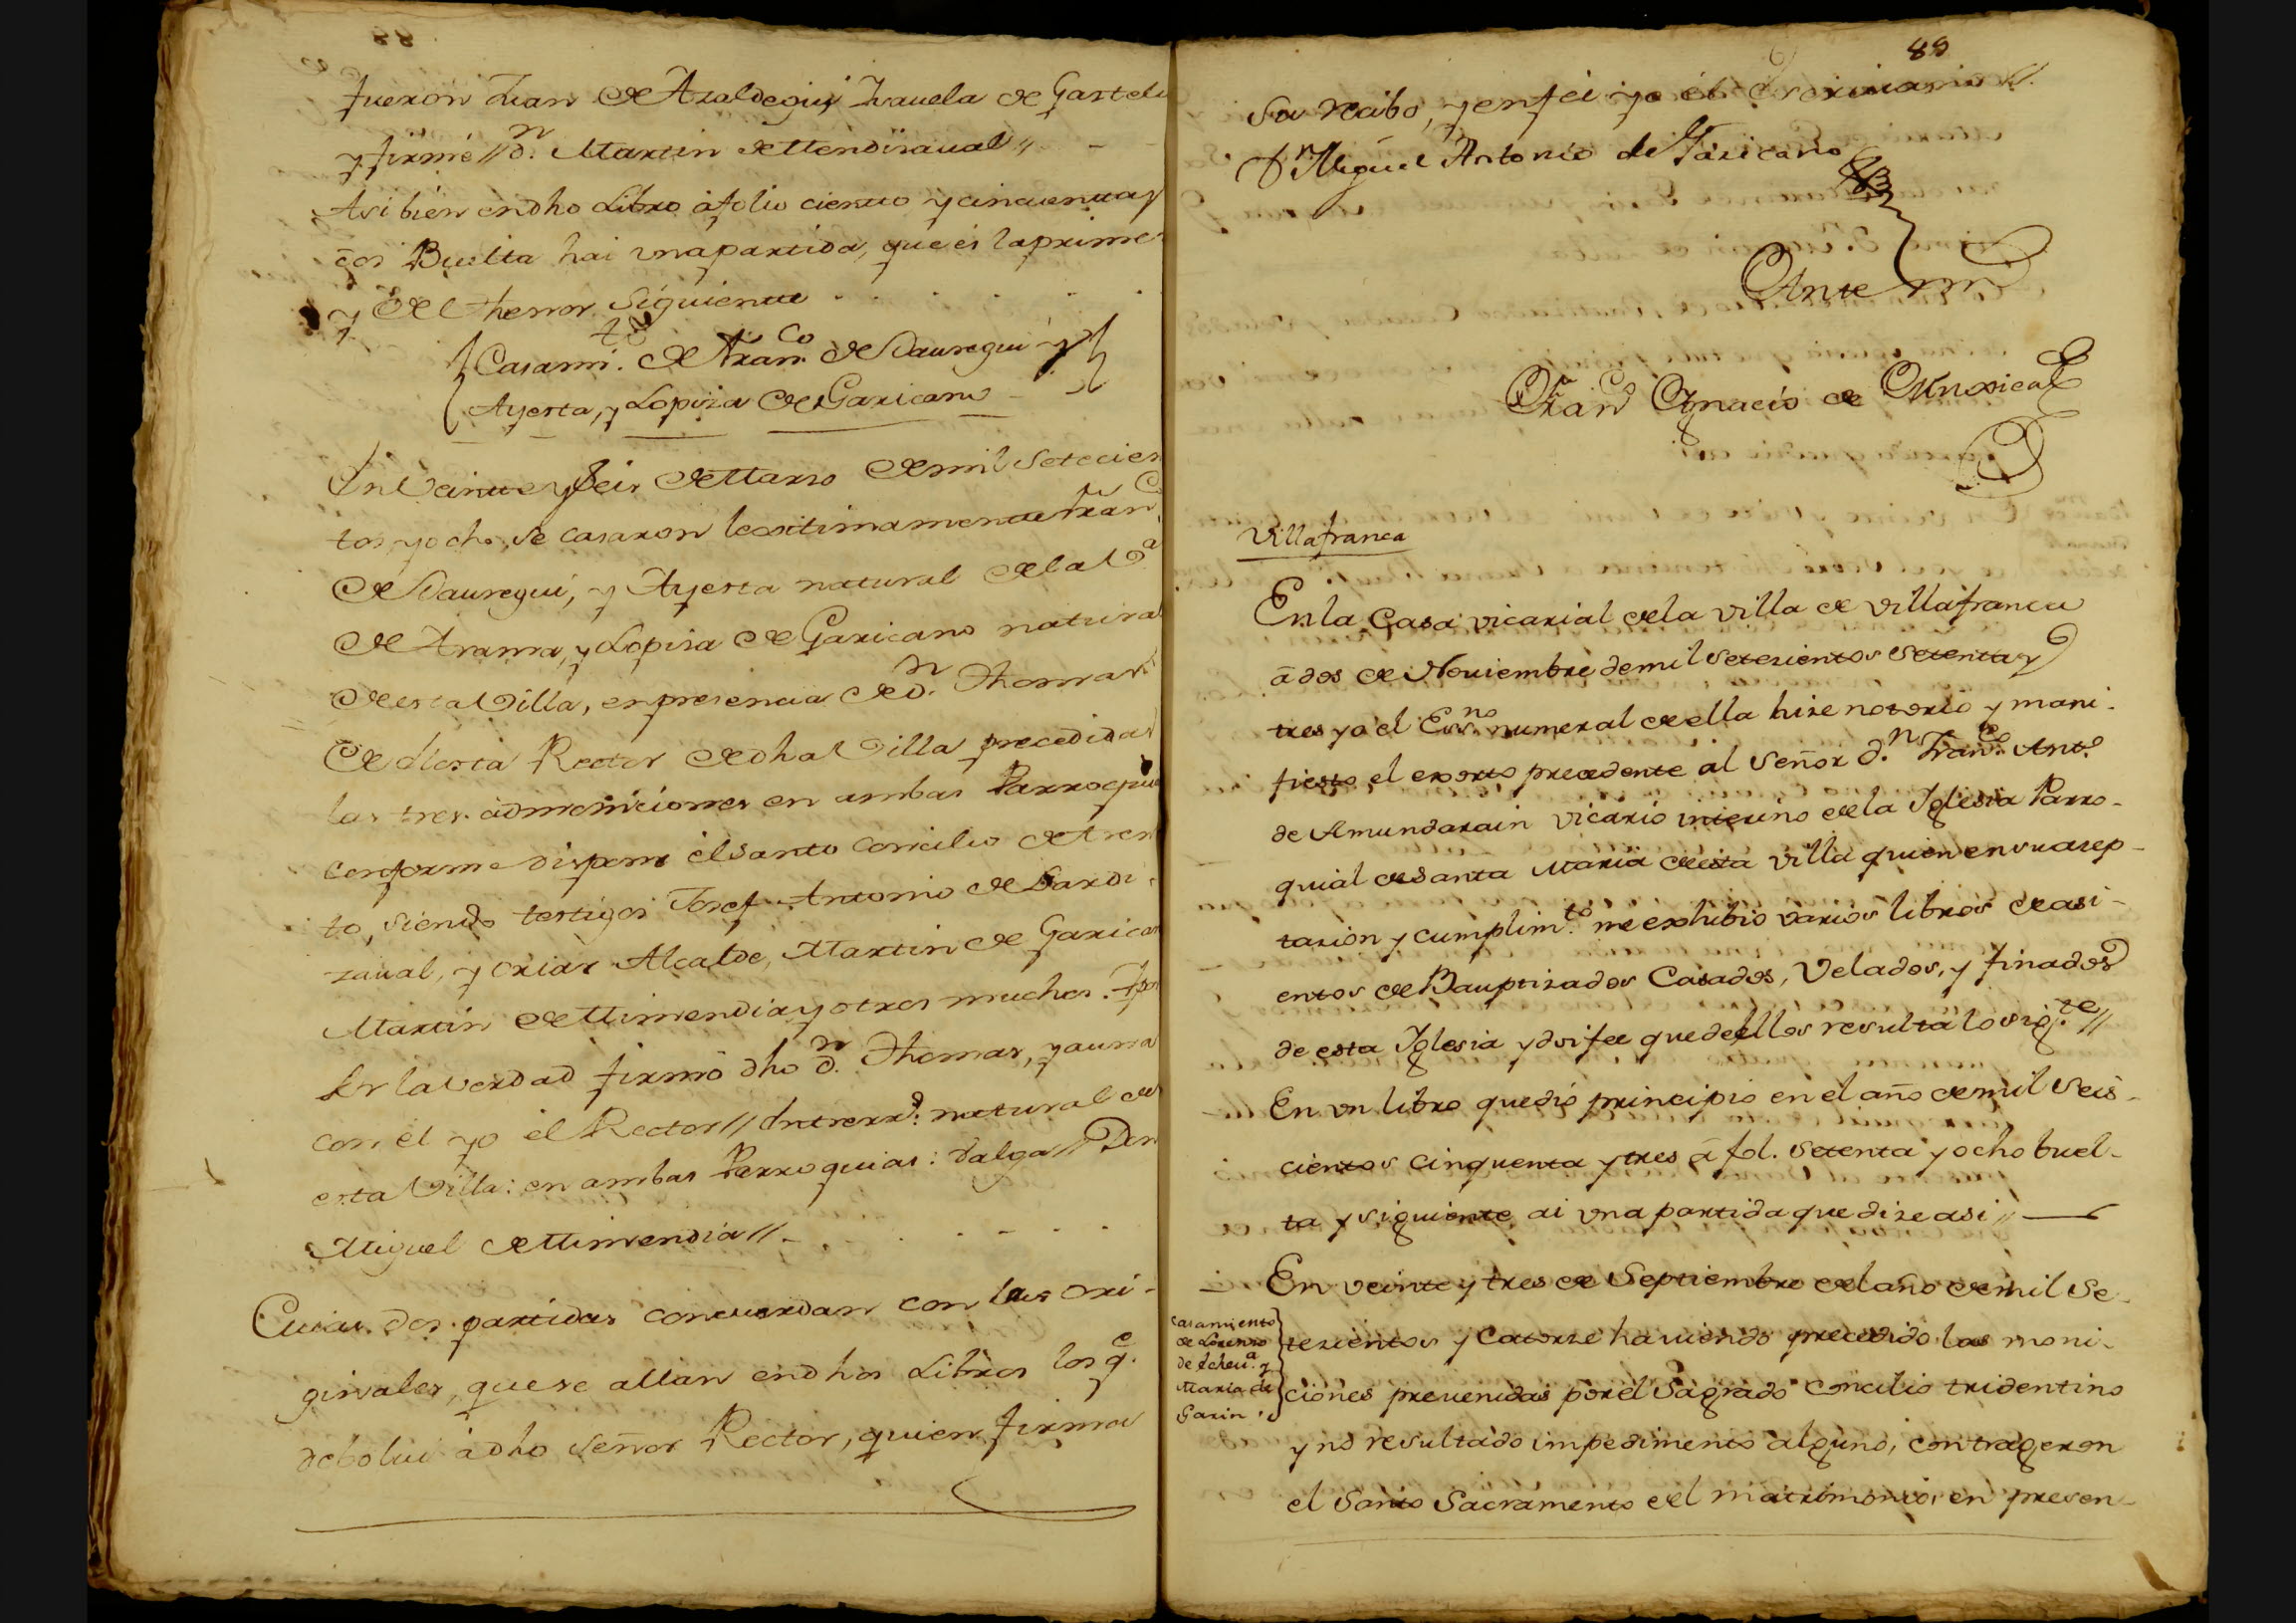 fueron Juan de Araldegui, Isauela de Gastelu
y firmé // Dn. Martin de Mendizaual //
Asi bien en dho Libro à folio ciento y cinquenta y
dos Buelta hai una partida, que es la prime-
y del thenor siguiente
Casamto. de Franco. de Jauregui y
Ayesta, y Lopiza de Garicano
En Veinte y seis de Marzo de mil setecien
tos y ocho se casaron lexitimamente Franco.
de Jauregui, y Ayesta natural de la Va.
de Arama, y Lopiza de Garicano natural
de esta Villa, en presencia de Dn. Thomas
de Rector de dha Villa precedidas
las tres admoniciones en ambas Parroquias
conforme dispone el santo concilio de Tren
to, siendo testigos Josef Antonio de Lardi
zaual, y Oriar Alcalde, Martin de Garicano
Martin de Mimendia y otros muchos. Y por
ser la Verdad firmó dho Dn. Thomas, y a una
con él yo el Rector // Entrerrs. natural de
esta Villa: en ambas Parroquias: Valga // Dn
Miguel de Mimendia //
Cuias dos partidas concuerdan con las ori-
ginales, que se allan en dhos Libros los qe.
debolui à dho Señor Rector, quien firmó
88
su recibo, y en feé yo él Escriuano //
Dn. Miguel Antonio de Garicano
Ante mi
Franco Ygnacio de Muxica
Villafranca
En la Casa vicarial de la villa de villafranca
à dos de Noviembre de mil setezientos setenta y
tres yo el Essno. numeral de ella hize notorio y mani-
fiesto el exorto precedente al Señor Dn. Franco. Anto.
de Amundarain vicario interino de la Yglesia Parro-
quial de santa Maria de esta villa quien en su azep-
tazion y cumplimto. me exhibio varios libros de asi-
entos de Bauptizados Casados, Velados, y finados
de esta Yglesia y doi fee que de ellos resulta lo sigte. //
En un libro que dió principio en el año de mil seis-
cientos cinquenta y tres à fol. setenta y ocho buel-
ta y siguiente ai una partida que dize asi //
En veinte y tres de Septiembre del año de mil se-
Casamiento
de Lorenzo
de Echeua. y
Maria de
Garin.
tezientos y catorze hauiendo precedido las moni-
ciones preuenidas por el Sagrado Concilio tridentino
y no resultado impedimento alguno, contrageron
el santo Sacramento del matrimonio, en presen-